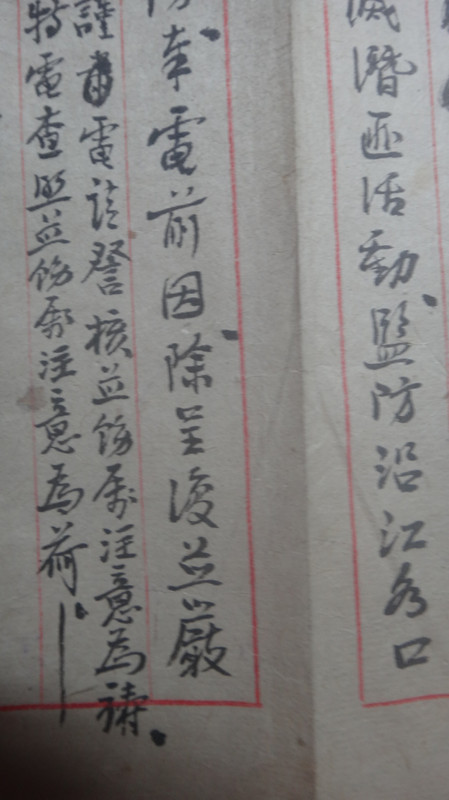 滅潛匪活動監防沿江各口
奉電前因除呈復並嚴
謹電請詧核並飭屬注意為禱
特電查照並飭屬注意為荷